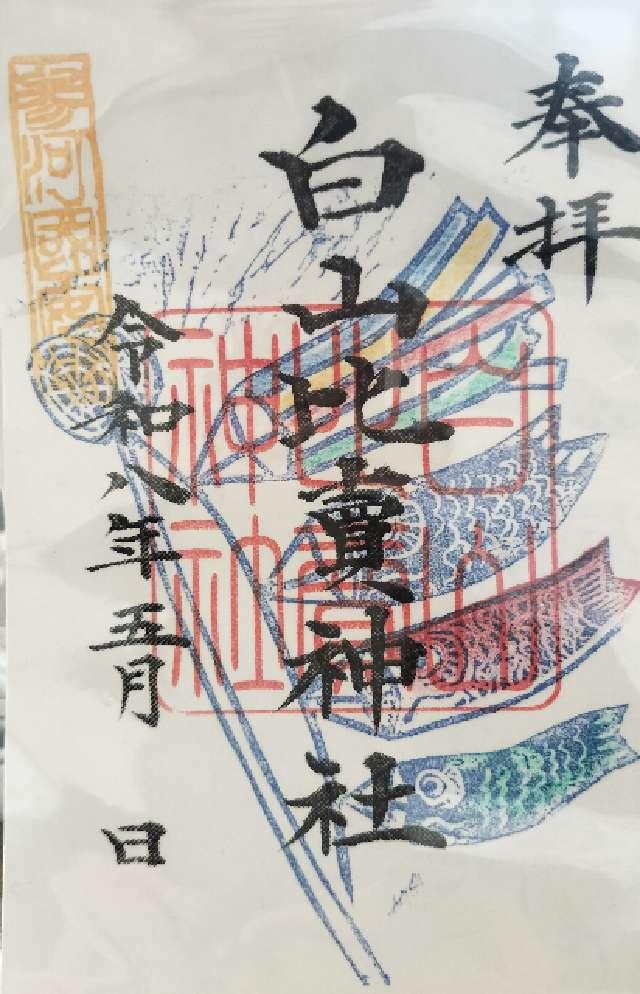 奉拝
白山比賣神社
令和八年五月 日
参河國
白山比賣神社